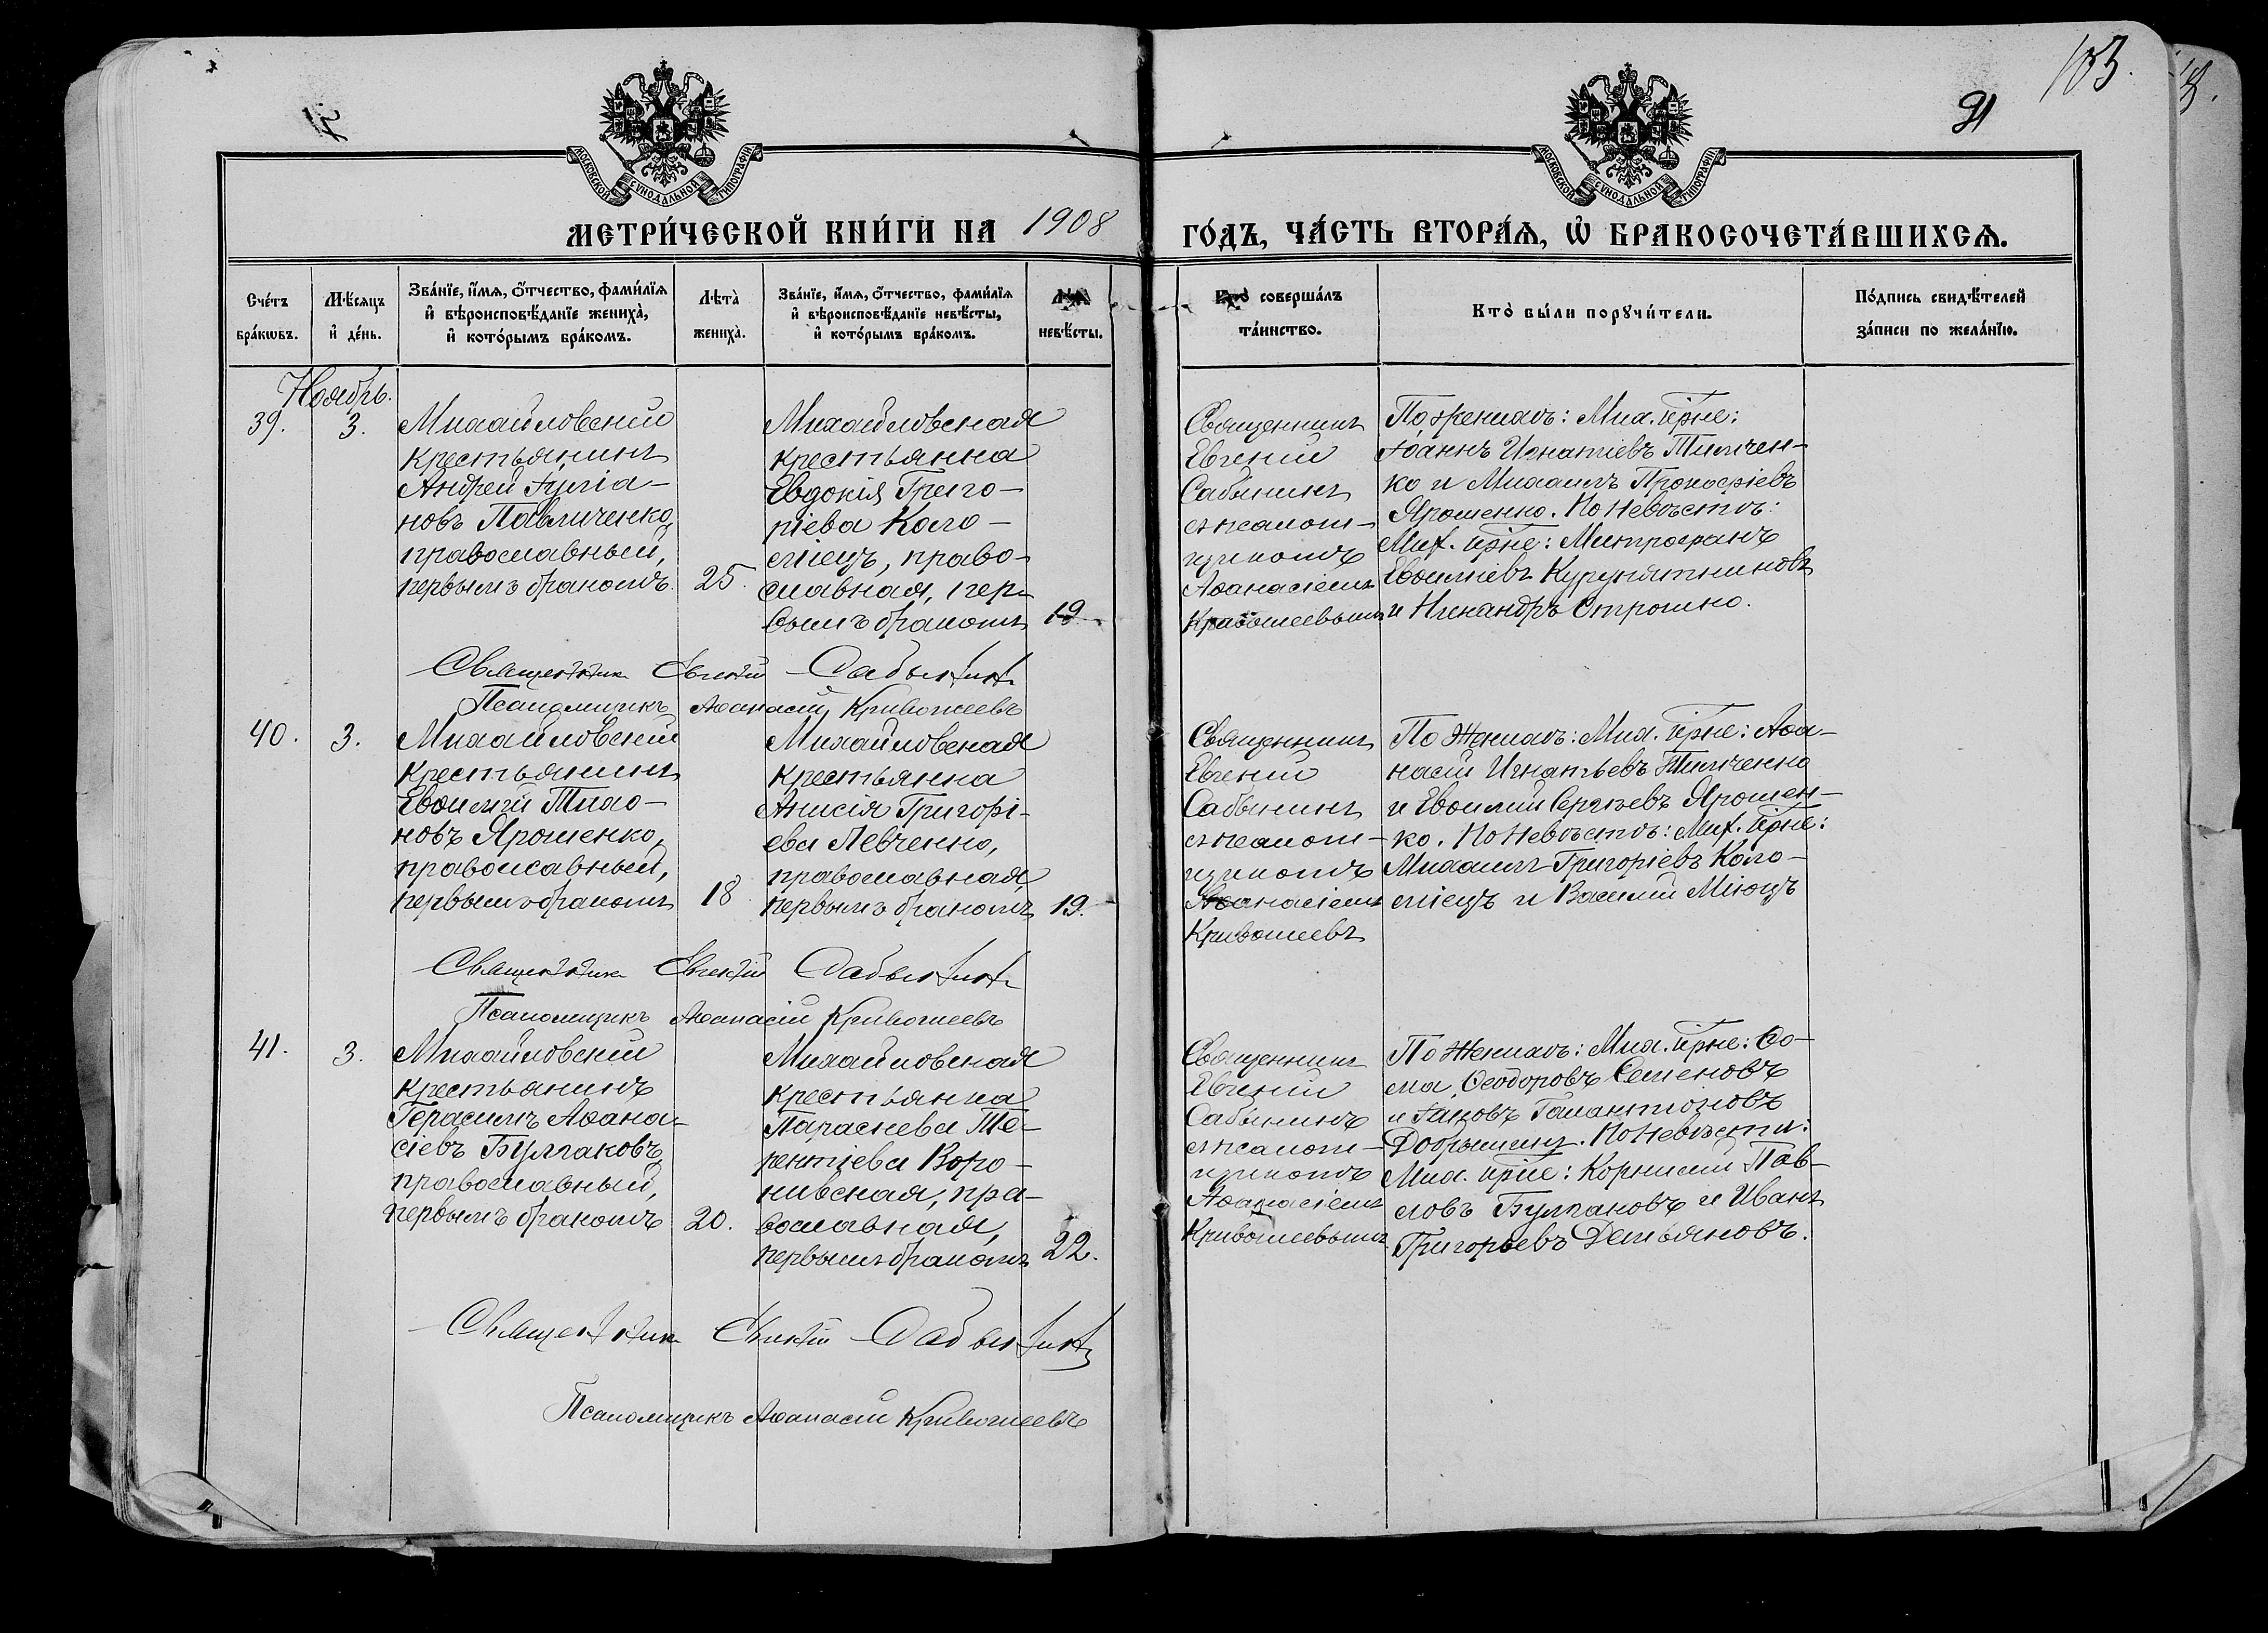 103.
91
МОСКОВСКОЙ СѴНОДАЛЬНОЙ ТИПОГРАФІИ
МОСКОВСКОЙ СѴНОДАЛЬНОЙ ТИПОГРАФІИ
МЕТРИ́ЧЕСКОЙ КНИ́ГИ НА 1908 ГО́ДЪ, ЧА́СТЬ ВТОРА́Ѧ, Ѡ҆ БРАКОСОЧЕТА́ВШИХСѦ.
Сче́тъ
бра́кѡвъ.
Мѣ́сѧцъ
и҆ де́нь.
Зва́нїе, и҆́мѧ, ѻ҆́тчество, фами́лїѧ
и҆ вѣроисповѣ́данїе жениха̀,
и҆ кото́рымъ бра́комъ.
Лѣта̀
жениха̀.
Зва́нїе, и҆́мѧ, ѻ҆́тчество, фами́лїѧ
и҆ вѣроисповѣ́данїе невѣ́сты,
и҆ кото́рымъ бра́комъ.
Лѣта̀
невѣ́сты.
Кто̀ соверша́лъ
та́инство.
Кто̀ бы́ли порꙋчи́тели.
По́дпись свидѣ́телей
за́писи по жела́нїю.
Ноябрь.
39.
3.
Михайловскій
крестьянинъ
Андрей Іуліа-
новъ Павличенко,
православный,
первымъ бракомъ.
25.
Михайловская
крестьянка
Евдокія Григо-
ріева Коло-
міецъ, право-
славная, пер-
вымъ бракомъ
19.
Священникъ
Евгеній
Сабынинъ
съ псалом-
щикомъ
Аѳанасіемъ
Кривошеевымъ
По женихѣ: Мих. крѣне:
Іоаннъ Игнатіевъ Тимчен-
ко и Михаилъ Прокофіевъ
Ярошенко. По невѣстѣ:
Мих. крѣне: Митрофанъ
Евѳиміевъ Курупятниковъ
и Никандръ Строшко.
Священникъ Евгеній Сабынинъ
Псаломщикъ Аѳанасій Кривошеевъ
40.
3.
Михайловскій
крестьянинъ
Евѳимій Тихо-
новъ Ярошенко,
православный,
первымъ бракомъ
18
Михайловская
крестьянка
Анисія Григорі-
ева Левченко,
православная,
первымъ бракомъ
19.
Священникъ
Евгеній
Сабынинъ
съ псалом-
щикомъ
Аѳанасіемъ
Кривошеевъ
По женихѣ: Мих. крѣне: Аѳа-
насій Игнатьевъ Тимченко
и Евѳимій Сергѣевъ Ярошен-
ко. По невѣстѣ: Мих. крѣне:
Михаилъ Григоріевъ Коло-
міецъ и Василій Міюцъ
Священникъ Евгеній Сабынинъ
Псаломщикъ Аѳанасій Кривошеевъ
41.
3.
Михайловскій
крестьянинъ
Герасимъ Аѳана-
сіевъ Булгаковъ,
православный,
первымъ бракомъ
20.
Михайловская
крестьянка
Параскева Те-
рентіева Воро-
нивская, пра-
вославная,
первымъ бракомъ
22.
Священникъ
Евгеній
Сабынинъ
съ псалом-
щикомъ
Аѳанасіемъ
Кривошеевымъ
По женихѣ: Мих. крѣне: Ѳо-
ма Ѳеодоровъ Семеновъ
и Іаковъ Галактіоновъ
Добрынинъ. По невѣстѣ:
Мих. крѣне: Корнилій Пав-
ловъ Булгаковъ и Иванъ
Григорьевъ Демьяновъ.
Священникъ Евгеній Сабынинъ
Псаломщикъ Аѳанасій Кривошеевъ